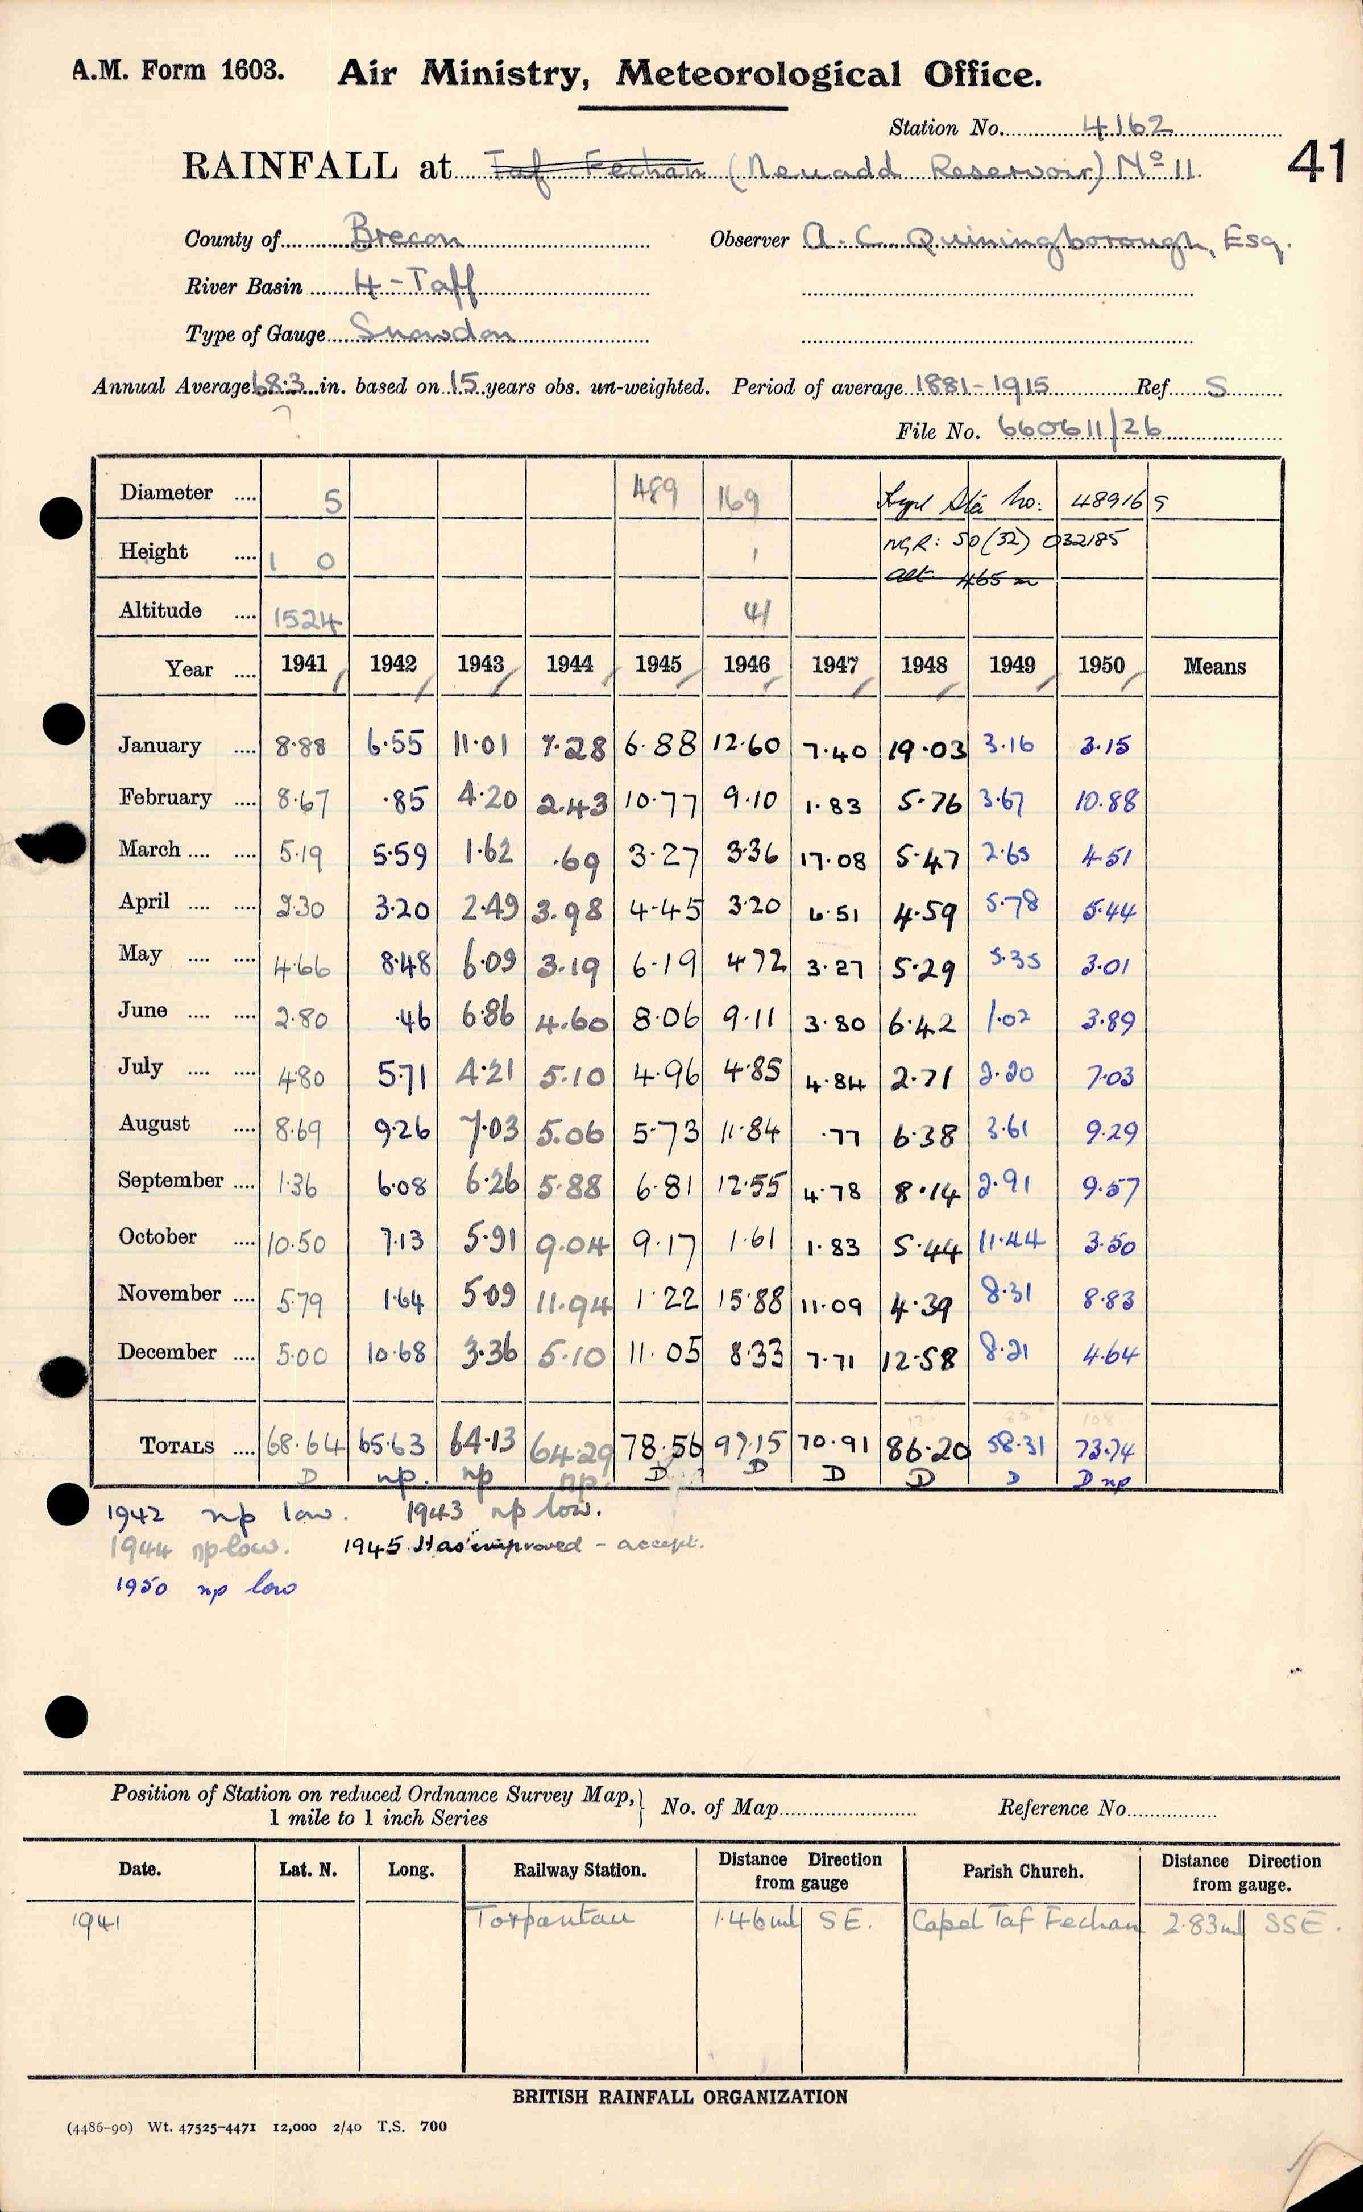 A.M. Form 1603. Air Ministry, Meteorological Office.
Station No. 4162
RAINFALL at Taf Fechan (Neuadd Reservoir) Nº 11. 41
County of Brecon Observer A. C. Quiningborough, Esq.
River Basin 4-Taff
Type of Gauge Snowdon
Annual Average 68.3 in. based on 15 years obs. un-weighted. Period of average 1881-1915 Ref. S
?
File No. 660611/26
Diameter .... 5 489 169 Sta No: 48916 9
Height .... 1 0 1 NGR: SO (32) 032185
alt 465 m
Altitude .... 1524 41
Year .... 1941 1942 1943 1944 1945 1946 1947 1948 1949 1950 Means
January .... 8.88 6.55 11.01 7.28 6.88 12.60 7.40 19.03 3.16 3.15
February .... 8.67 .85 4.20 2.43 10.77 9.10 1.83 5.76 3.67 10.88
March .... .... 5.19 5.59 1.62 .69 3.27 3.36 17.08 5.47 2.65 4.51
April .... .... 2.30 3.20 2.49 3.98 4.45 3.20 6.51 4.59 5.78 5.44
May .... .... 4.66 8.48 6.09 3.19 6.19 4.72 3.27 5.29 5.35 3.01
June .... .... 2.80 .46 6.86 4.60 8.06 9.11 3.80 6.42 1.02 3.89
July .... .... 4.80 5.71 4.21 5.10 4.96 4.85 4.84 2.71 2.20 7.03
August .... 8.69 9.26 7.03 5.06 5.73 11.84 .77 6.38 3.61 9.29
September .... 1.36 6.08 6.26 5.88 6.81 12.55 4.78 8.14 2.91 9.57
October .... 10.50 7.13 5.91 9.04 9.17 1.61 1.83 5.44 11.44 3.50
November .... 5.79 1.64 5.09 11.94 1.22 15.88 11.09 4.39 8.31 8.83
December .... 5.00 10.68 3.36 5.10 11.05 8.33 7.71 12.58 8.21 4.64
TOTALS .... 68.64 65.63 64.13 64.29 78.56 97.15 70.91 86.20 58.31 73.74
D np. np np. D D D D D D np
1942 np low. 1943 np low.
1944 np low. 1945 Has improved - accept.
1950 np low
Position of Station on reduced Ordnance Survey Map, 1 mile to 1 inch Series } No. of Map Reference No.
Date. Lat. N. Long. Railway Station. Distance Direction from gauge Parish Church. Distance Direction from gauge.
1941 Torpantau 1.46ml SE. Capel Taf Fechan 2.83ml SSE.
BRITISH RAINFALL ORGANIZATION
(4486-90) Wt. 47525-4471 12,000 2/40 T.S. 700